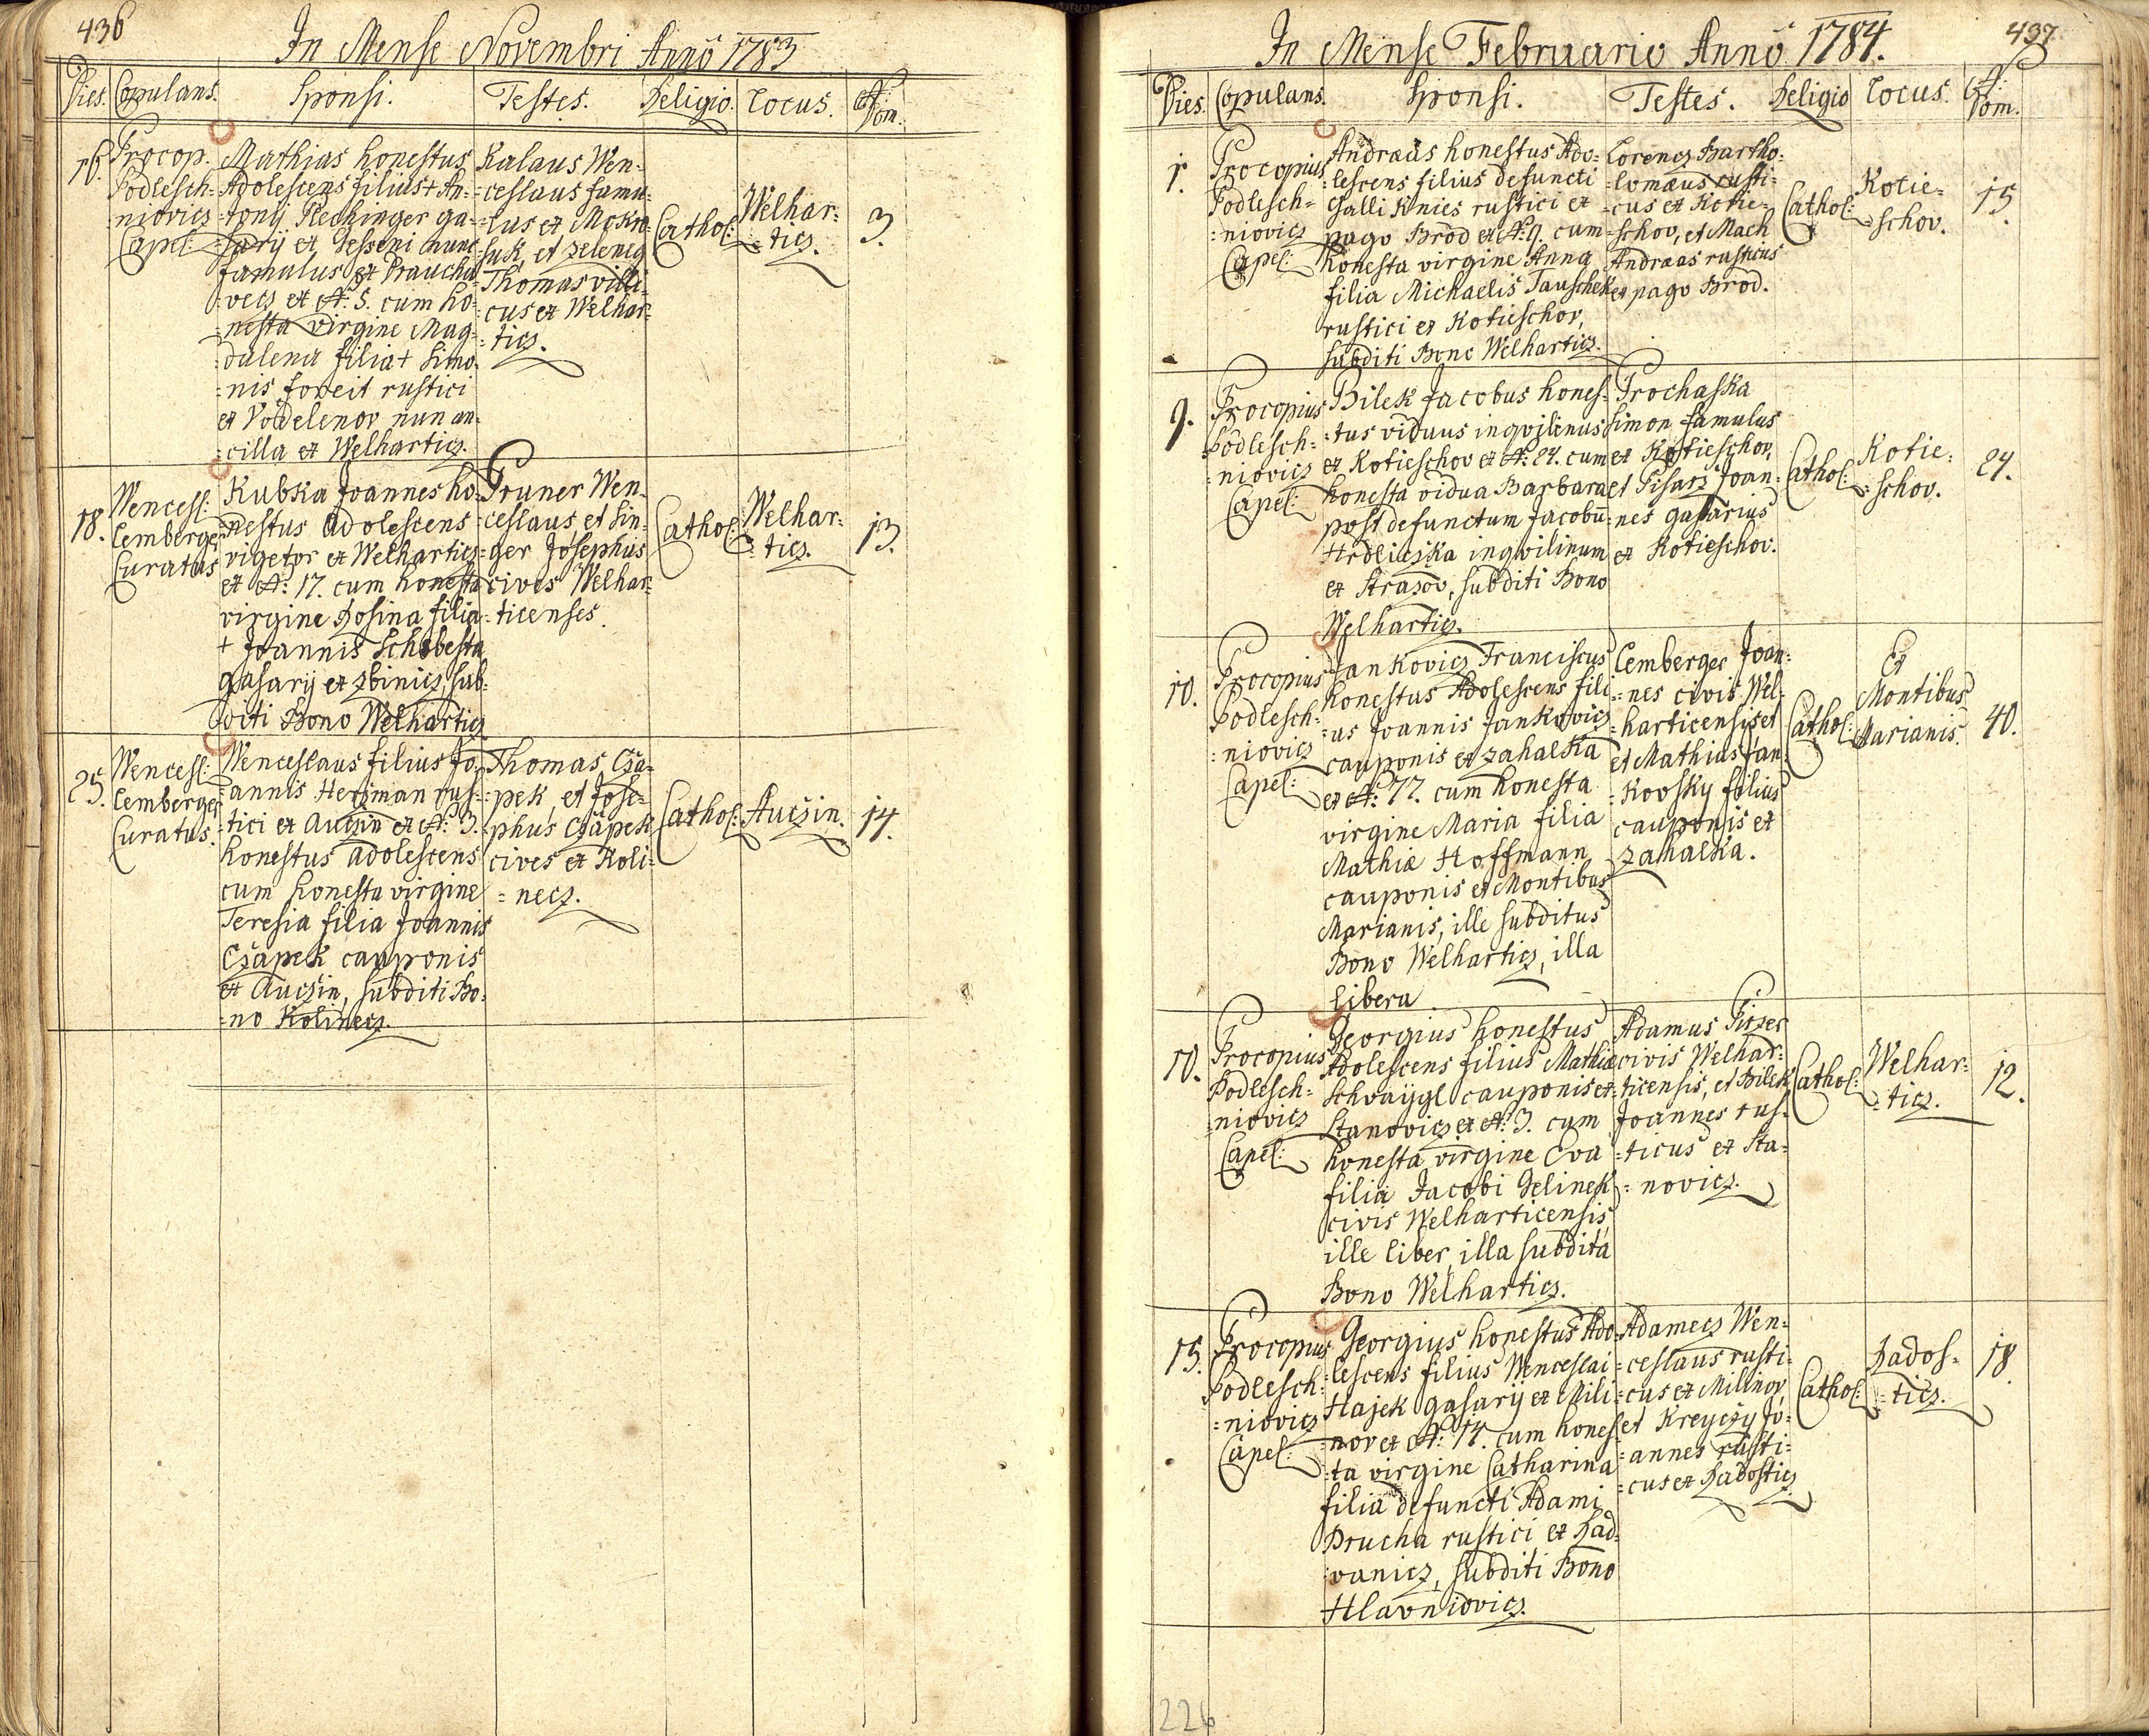 436
In Mense Novembri Anno 1783
Dies. Copulans. Sponsi. Testes. Religio. Locus. N: Dom.
16.
Procop.
Podlesch-
=niovicz
Capel:
Mathias honestus
Adolescens filius + An=
=tonij Plechinger ga=
=sarij ex Jesseni nunc
famulus ex Praucho=
=vecz ex N: 5. cum ho=
=nesta virgine Mag=
=dalena filia + Simo=
=nis foreit rustici
ex Vodelenov nun an=
=cilla ex Welharticz.
Kalaus Wen=
=ceslaus famu=
=lus ex Mokro=
=suk, et Zeleney
Thomas villi=
=cus ex Welhar=
=ticz.
Cathol:
Welhar=
=ticz.
3.
18.
Wencesl:
Lemberger
Curatus
Kubka Joannes ho=
=nestus adolescens
vigetor ex Welharticz
ex N: 17. cum honesta
virgine Rosina filia
+ Joannis Schebesta
gasarij ex Zbinicz, sub=
=diti Bono Welharticz
Gruner Wen=
=ceslaus et Sin=
=ger Josephus
cives Welhar=
=ticenses.
Cathol:
Welhar=
=ticz.
13.
25.
Wencesl:
Lemberger
Curatus.
Wenceslaus filius Jo=
=annis Herzman rus=
=tici ex Auczin ex N: 3.
honestus adolescens
cum honesta virgine
Teresia filia Joannis
Czapek cauponis
ex Auczin, subditi Bo=
=no Kolinecz.
Thomas Cza=
=pek, et Jose=
=phus Czapek
cives ex Koli=
=necz.
Cathol:
Auczin.
14.
437.
In Mense Februario Anno 1784.
Dies. Copulans. Sponsi. Testes. Religio Locus. N: Dom.
1.
Procopius
Podlesch=
=niovicz
Capel:
Andreas honestus Ado=
=lescens filius defuncti
Galli Knies rustici ex
pago Brod ex N: 9. cum
honesta virgine Anna
filia Michaelis Tauschek
rustici ex Kotieschov,
subditi Bono Welharticz.
Lorencz Bartho=
=lomæus rusti=
=cus ex Kotie=
=schov, et Mach
Andreas rusticus
ex pago Brod.
Cathol:
Kotie=
=schov.
15.
9.
Procopius
Podlesch=
=niovicz
Capel:
Bilek Jacobus hones=
=tus viduus inqvilinus
ex Kotieschov ex N: 24. cum
honesta vidua Barbara
post defunctum Jacobū
Hrdliczka inqvilinum
ex Strazov, subditi Bono
Welharticz.
Prochaska
Simon famulus
ex Kotieschov,
et Pisarz Joan=
=nes gasarius
ex Kotieschov.
Cathol:
Kotie=
=schov.
24.
10.
Procopius
Podlesch=
=niovicz
Capel:
Jankovicz Franciscus
honestus Adolescens fili=
=us Joannis Jankovicz
cauponis ex Zahalka
ex N: 77. cum honesta
virgine Maria filia
Mathiæ Hoffmann
cauponis ex Montibus
Marianis, ille subditus
Bono Welharticz, illa
libera
Lemberger Joan=
=nes civis Wel=
=harticensis et
et Mathias Jan=
=kovsky filius
cauponis ex
Zahalka.
Cathol:
Ex
Montibus
Marianis.
40.
10.
Procopius
Podlesch=
=niovicz
Capel:
Georgius honestus
Adolescens filius Mathiæ
Schvaijgl cauponis ex
Stanovicz ex N: 3. cum
honesta virgine Eva
filia Jacobi Gelinek
civis Welharticensis,
ille liber, illa subdita
Bono Welharticz.
Adamus Pirzer
civis Welhar=
=ticensis, et Bilek
Joannes rus=
=ticus ex Sta=
=novicz.
Cathol:
Welhar=
=ticz.
12.
15.
Procopius
Podlesch=
=niovicz
Capel:
Georgius honestus Ado=
=lescens filius Wenceslai
Hajek gasarij ex Mili=
=nov ex N: 14. cum hones=
=ta virgine Catharina
filia defuncti Adami
Brucha rustici ex Rad=
=vanicz, subditi Bono
Hlavniovicz.
Adamecz Wen=
=ceslaus rusti=
=cus ex Milinov,
et Kreyczy Jo=
=annes rusti=
=cus ex Radosticz
Cathol:
Rados=
=ticz.
18.
226